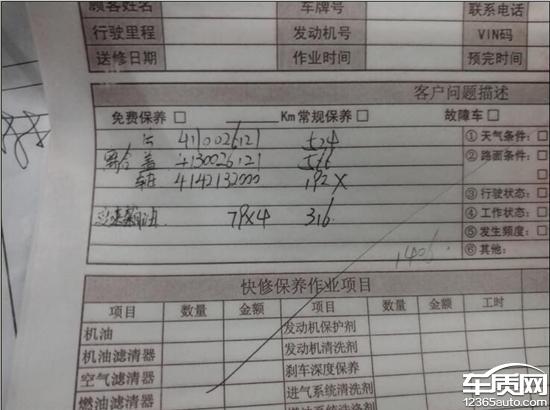 顾客姓名 车牌号 联系电话
行驶里程 发动机号 VIN码
送修日期 作业时间 预完时间
客户问题描述
免费保养 □ Km常规保养 □ 故障车 □
4110026121 524
离合盖 4130026121 566
4142132000 192 X
变速箱油 79X4 316
1406
①天气条件: □
②路面条件: □
③行驶状态: □
④工作状态: □
⑤发生频度: □
⑥其他:
快修保养作业项目
项目 数量 金额 项目 数量 金额 工时
机油 发动机保护剂
机油滤清器 发动机清洗剂
空气滤清器 刹车深度保养
燃油滤清器 进气系统清洗剂
车质网
12365auto.com